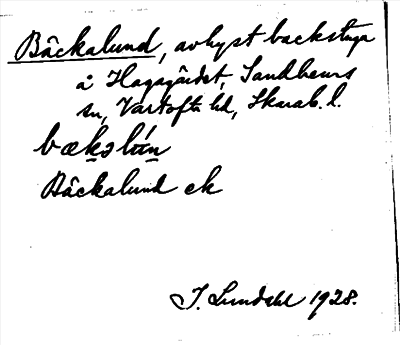 Bäckalund, avhyst backstuga
å Hagagärdet, Sandhems
sn, Vartofta hd, Skarab. l.
bækəlún
Bäckalund ek
I. Lundahl 1928.